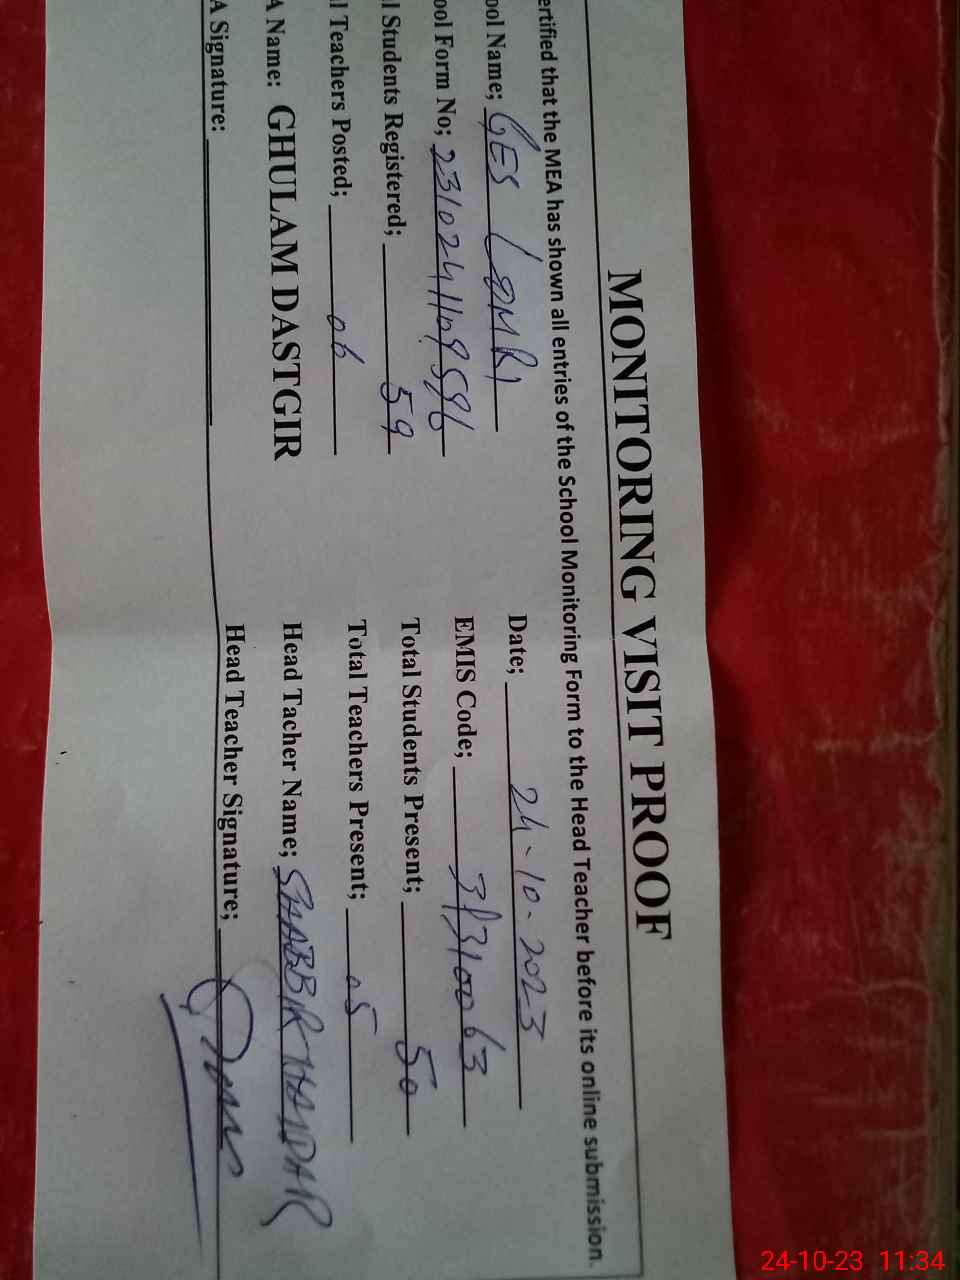 MONITORING VISIT PROOF
ertified that the MEA has shown all entries of the School Monitoring Form to the Head Teacher before its online submission.
ool Name; GES LOMRI Date; 24-10-2023
ool Form No; EMIS Code; 31310063
l Students Registered; 59 Total Students Present; 50
l Teachers Posted; 06 Total Teachers Present; 05
A Name: GHULAM DASTGIR Head Tacher Name; SHABBIR HAIDAR
A Signature: Head Teacher Signature;
24-10-23 11:34